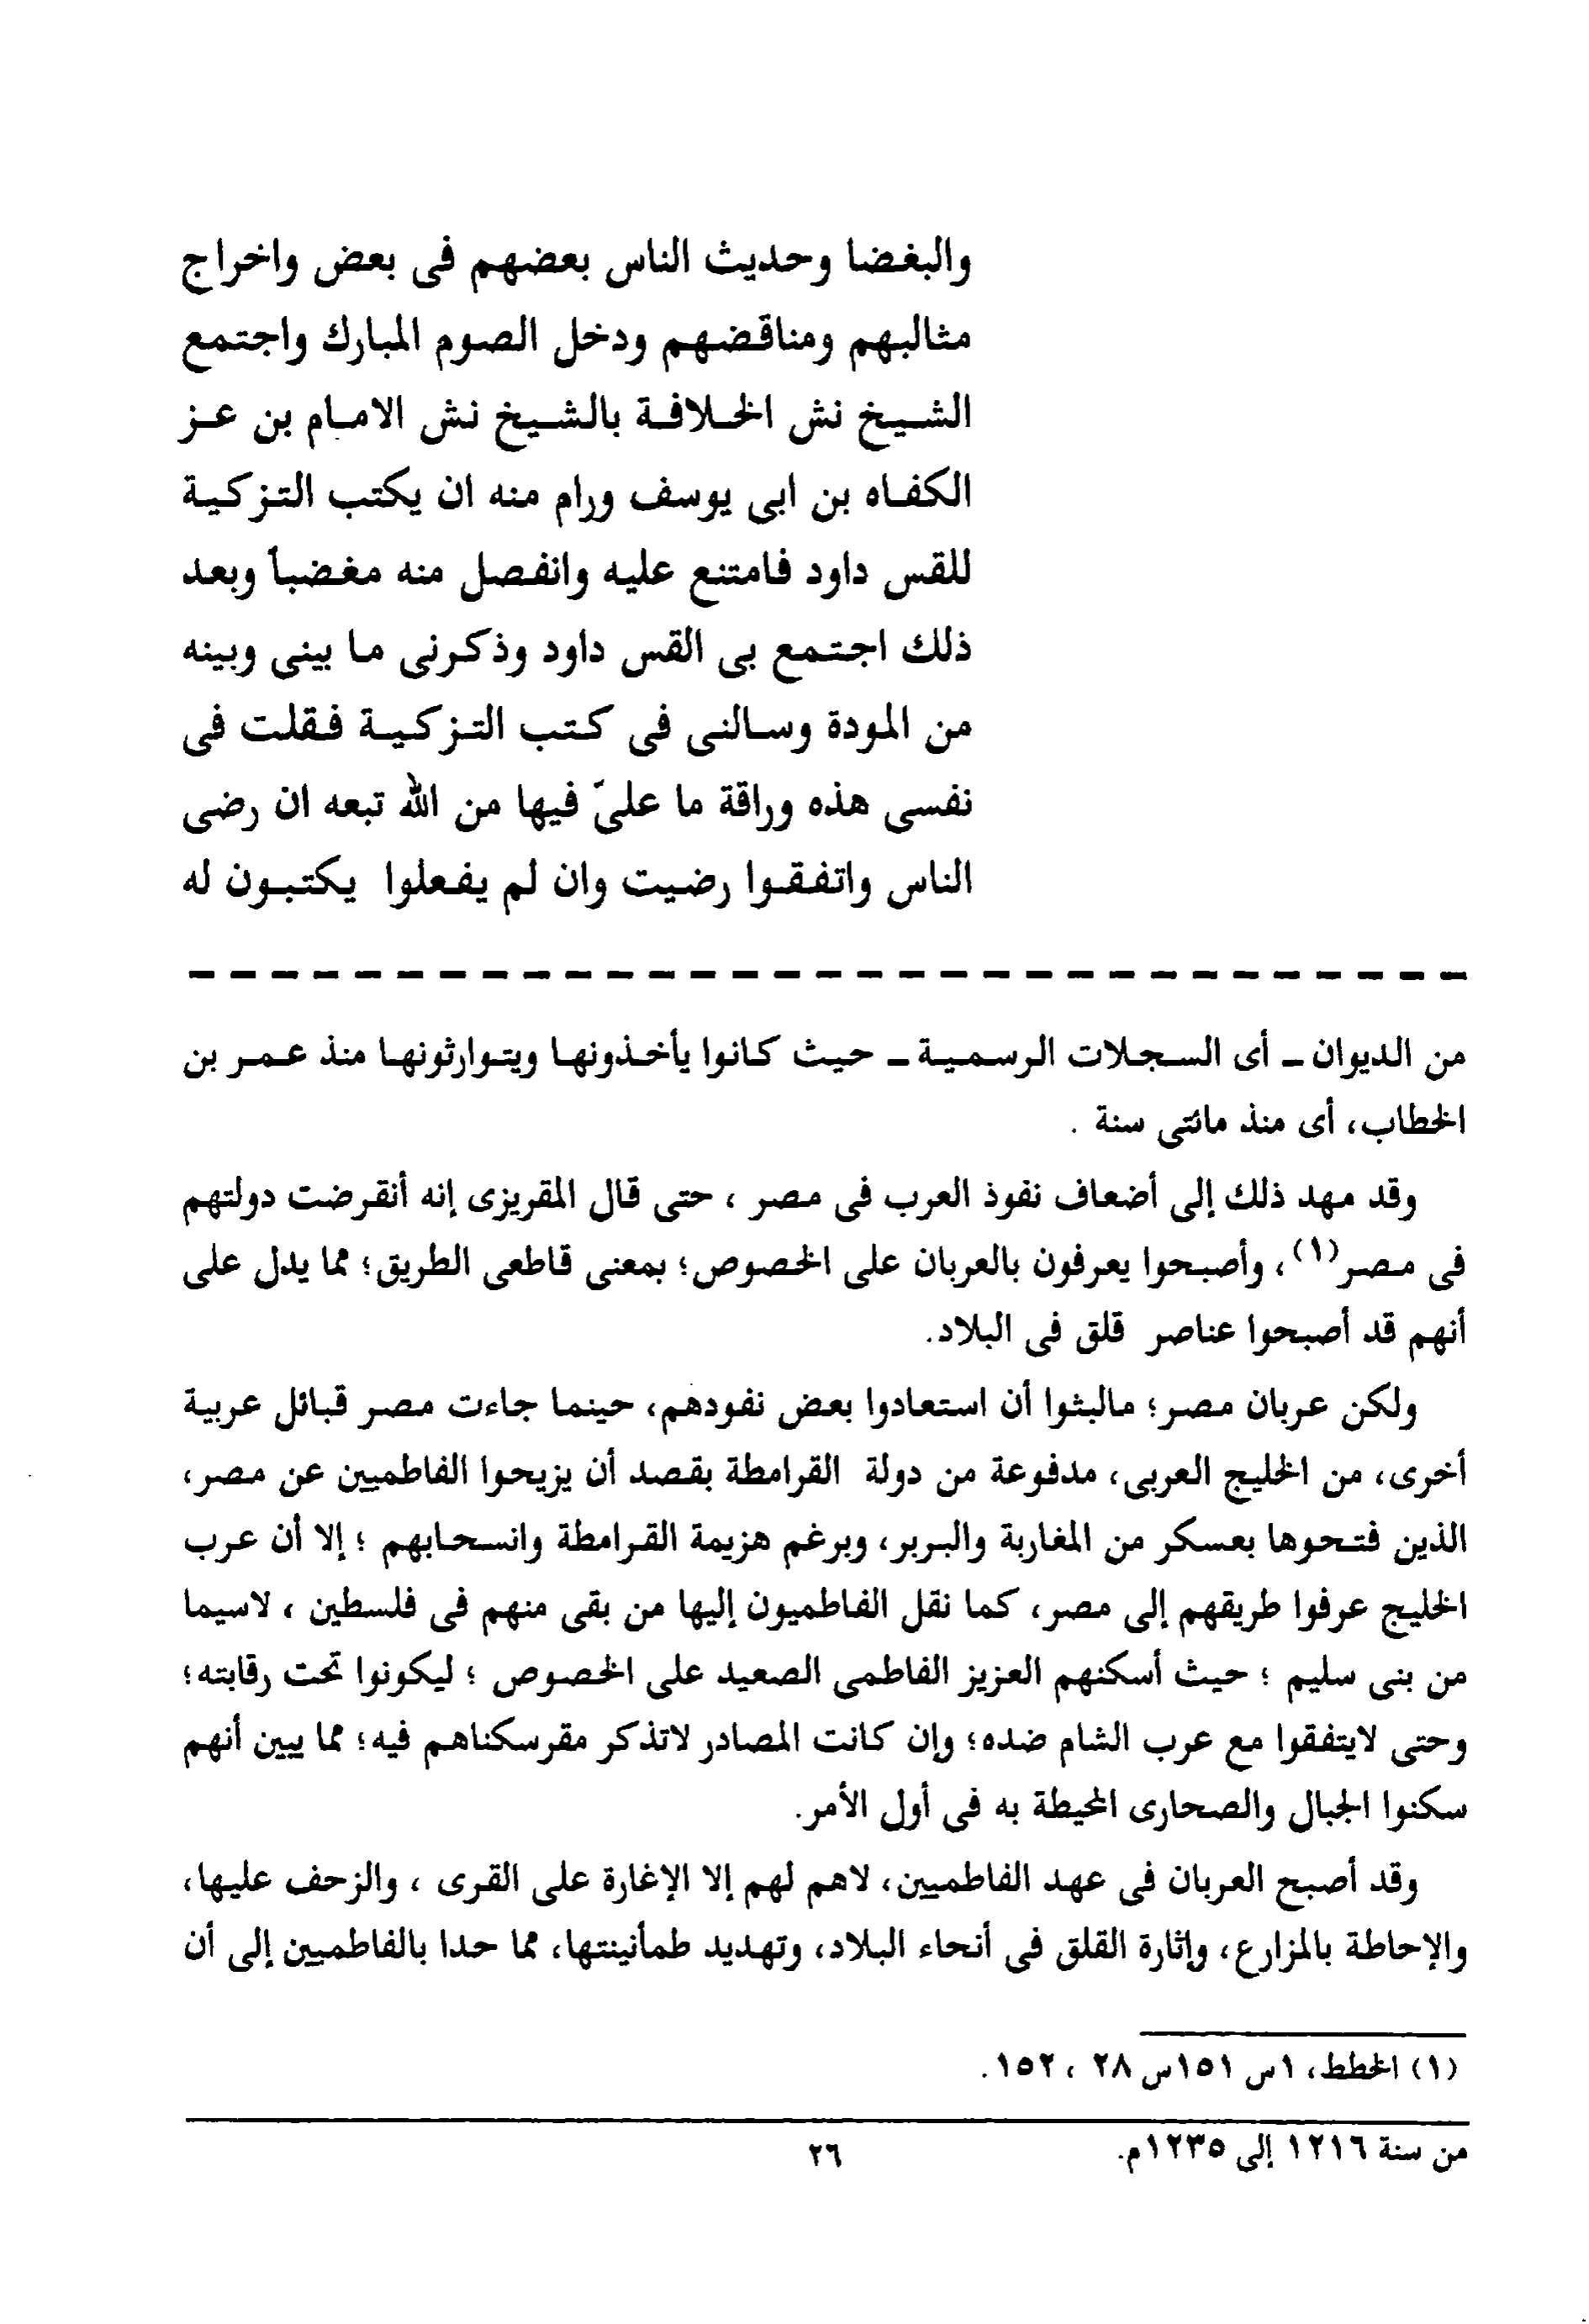 والبغضا وحديث الناس بعضهم فى بعض واخراج
مثالبهم ومناقضهم ودخل الصوم المبارك واجتمع
الشيخ نش الخلافة بالشيخ نش الامام بن عز
الكفاه بن ابى يوسف ورام منه ان يكتب التزكية
للقس داود فامتنع عليه وانفصل منه مغضباً وبعد
ذلك اجتمع بى القس داود وذكرنى ما بينى وبينه
من المودة وسالنى فى كتب التزكية فقلت فى
نفسى هذه وراقة ما علىّ فيها من الله تبعه ان رضى
الناس واتفقوا رضيت وان لم يفعلوا يكتبون له
من الديوان ـ أى السجلات الرسمية ـ حيث كانوا يأخذونها ويتوارثونها منذ عمر بن
الخطاب، أى منذ مائتى سنة .
وقد مهد ذلك إلى أضعاف نفوذ العرب فى مصر ، حتى قال المقريزى إنه أنقرضت دولتهم
فى مصر(١)، وأصبحوا يعرفون بالعربان على الخصوص؛ بمعنى قاطعى الطريق؛ مما يدل على
أنهم قد أصبحوا عناصر قلق فى البلاد.
ولكن عربان مصر؛ مالبثوا أن استعادوا بعض نفودهم، حينما جاءت مصر قبائل عربية
أخرى، من الخليج العربى، مدفوعة من دولة القرامطة بقصد أن يزيحوا الفاطميين عن مصر،
الذين فتحوها بعسكر من المغاربة والبربر، وبرغم هزيمة القرامطة وانسحابهم ؛ إلا أن عرب
الخليج عرفوا طريقهم إلى مصر، كما نقل الفاطميون إليها من بقى منهم فى فلسطين ، لاسيما
من بنى سليم ؛ حيث أسكنهم العزيز الفاطمى الصعيد على الخصوص ؛ ليكونوا تحت رقابته؛
وحتى لايتفقوا مع عرب الشام ضده؛ وإن كانت المصادر لاتذكر مقرسكناهم فيه؛ مما يبين أنهم
سكنوا الجبال والصحارى المحيطة به فى أول الأمر.
وقد أصبح العربان فى عهد الفاطميين، لاهم لهم إلا الإغارة على القرى ، والزحف عليها،
والإحاطة بالمزارع، وإثارة القلق فى أنحاء البلاد، وتهديد طمأنينتها، مما حدا بالفاطميين إلى أن
(١) الخطط، ١س ١٥١س ٢٨ ، ١٥٢.
من سنة ١٢١٦ إلى ١٢٣٥م.
٢٦